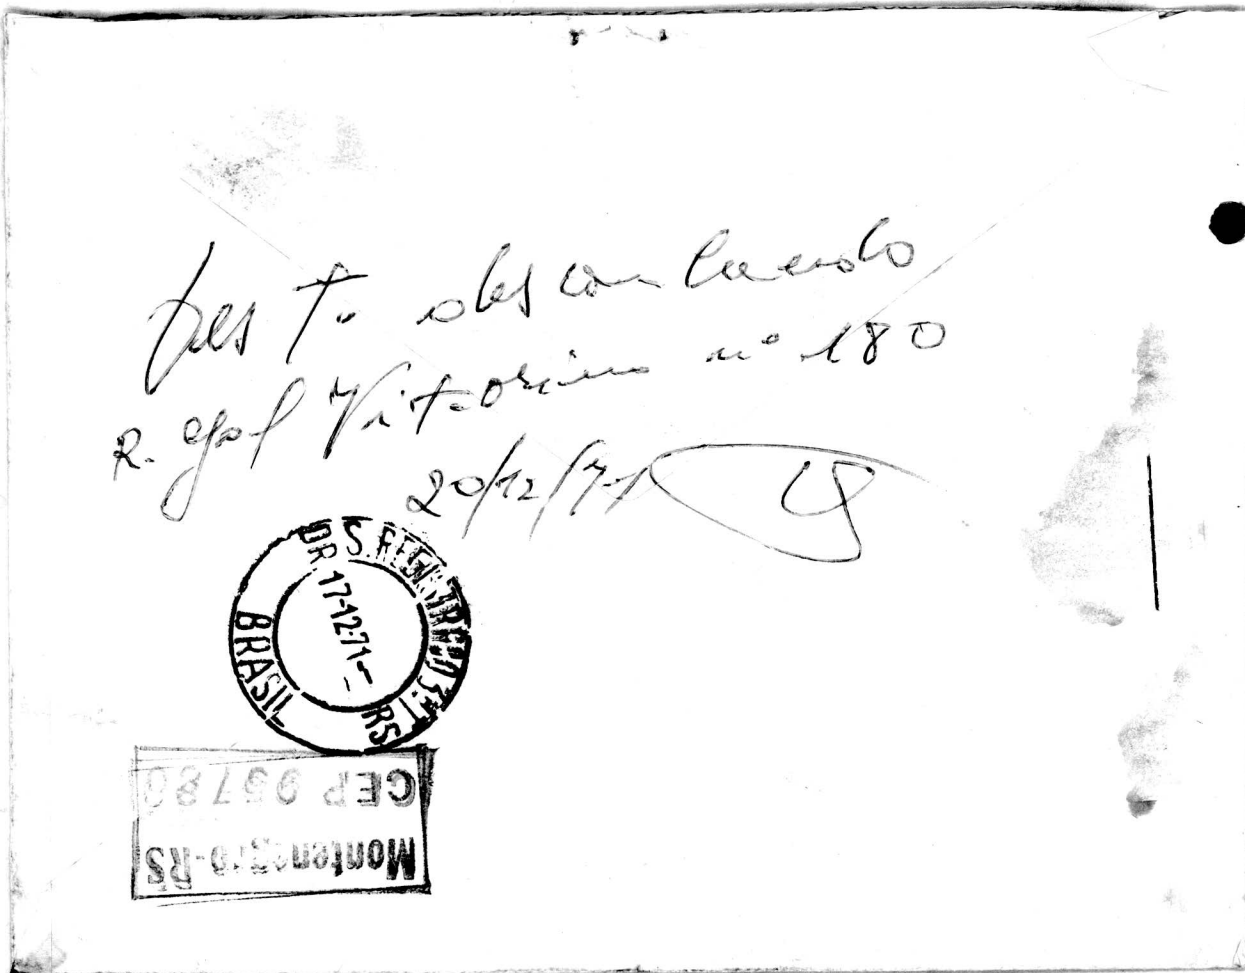 Dest. desconhecido
R. Gal Vitorino nº 180
20/12/71
DR S. REGISTRADO 3.T. RS
17-12-71
BRASIL
Montenegro-RS
CEP 95780